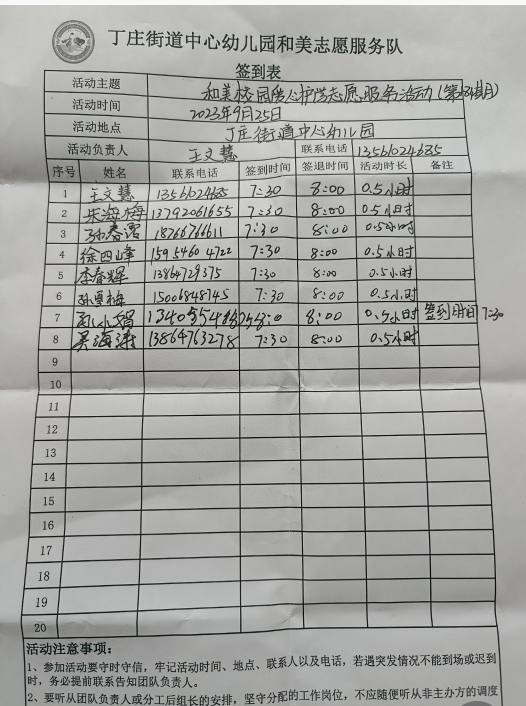 丁庄街道中心幼儿园和美志愿服务队
签到表
活动主题 和美校园爱心护学志愿服务活动
活动时间 2023年9月25日
活动地点 丁庄街道中心幼儿园
活动负责人 王文慧 联系电话 13561024685
序号 姓名 联系电话 签到时间 签退时间 活动时长 备注
1 王文慧 13561024685 7:30 8:00 0.5小时
2 朱海梅 13792061655 7:30 8:00 0.5小时
3 孙春霞 18766766611 7:30 8:00 0.5小时
4 徐四峰 159 5460 4722 7:30 8:00 0.5小时
5 李春辉 13864729375 7:30 8:00 0.5小时
6 梅 15006848745 7:30 8:00 0.5小时
7 8:00 0.5小时 签到时间 7:30
8 吴海涛 13864763278 7:30 8:00 0.5小时
9
10
11
12
13
14
15
16
17
18
19
20
活动注意事项：
1、参加活动要守时守信，牢记活动时间、地点、联系人以及电话，若遇突发情况不能到场或迟到
时，务必提前联系告知团队负责人。
2、要听从团队负责人或分工后组长的安排，坚守分配的工作岗位，不应随便听从非主办方的调度